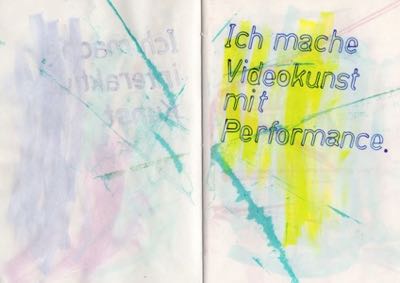 Ich mache
Videokunst
mit
Performance.